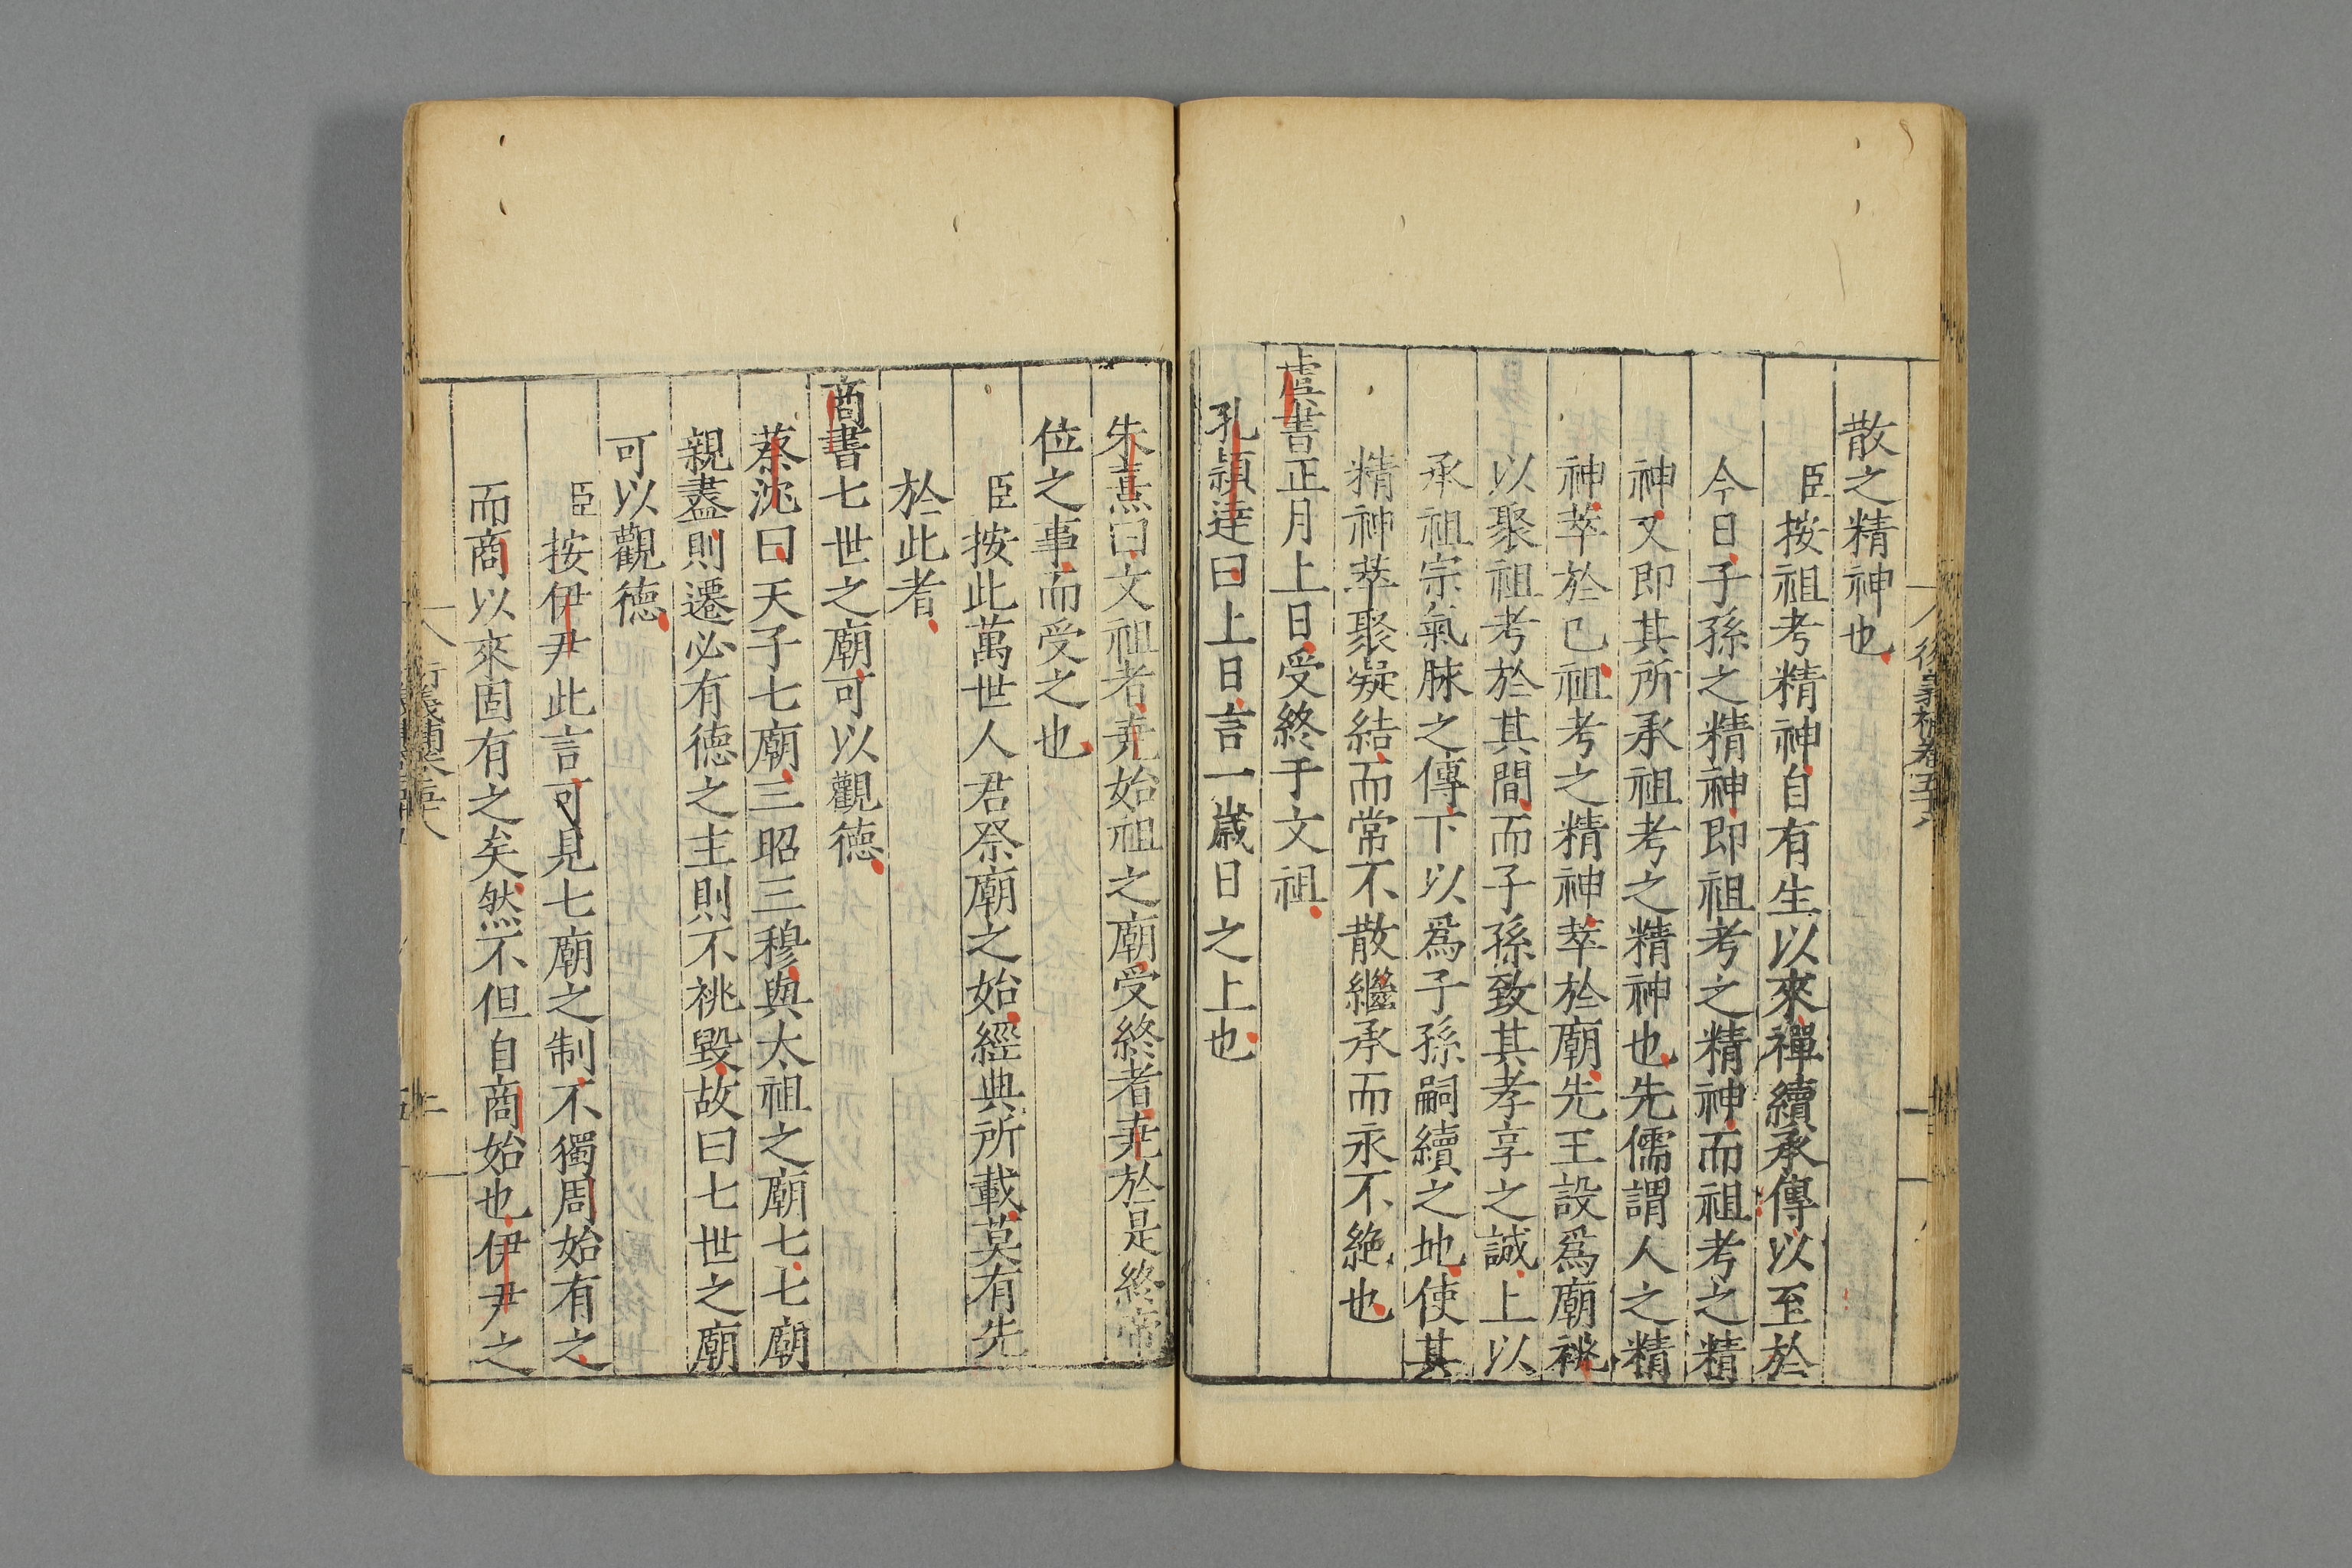 散之精神也
臣按祖考精神自有生以來禪續承傳以至於
今日子孫之精神即祖考之精神而祖考之精
神又即其所承祖考之精神也先儒謂人之精
神萃於己祖考之精神萃於廟先王設爲廟祧
以聚祖考於其間而子孫致其孝享之誠上以
承祖宗氣脉之傳下以爲子孫嗣續之地使其
精神萃聚凝結而常不散繼承而永不絶也
虞書正月上日受終于文祖
孔穎達曰上日言一歲日之上也
朱熹曰文祖者堯始祖之廟受終者堯於是終帝
位之事而受之也
臣按此萬世人君祭廟之始經典所載莫有先
於此者
商書七世之廟可以觀德
蔡沈曰天子七廟三昭三穆與太祖之廟七七廟
親盡則遷必有德之主則不祧毀故曰七世之廟
可以觀德
臣按伊尹此言可見七廟之制不獨周始有之
而商以來固有之矣然不但自商始也伊尹之